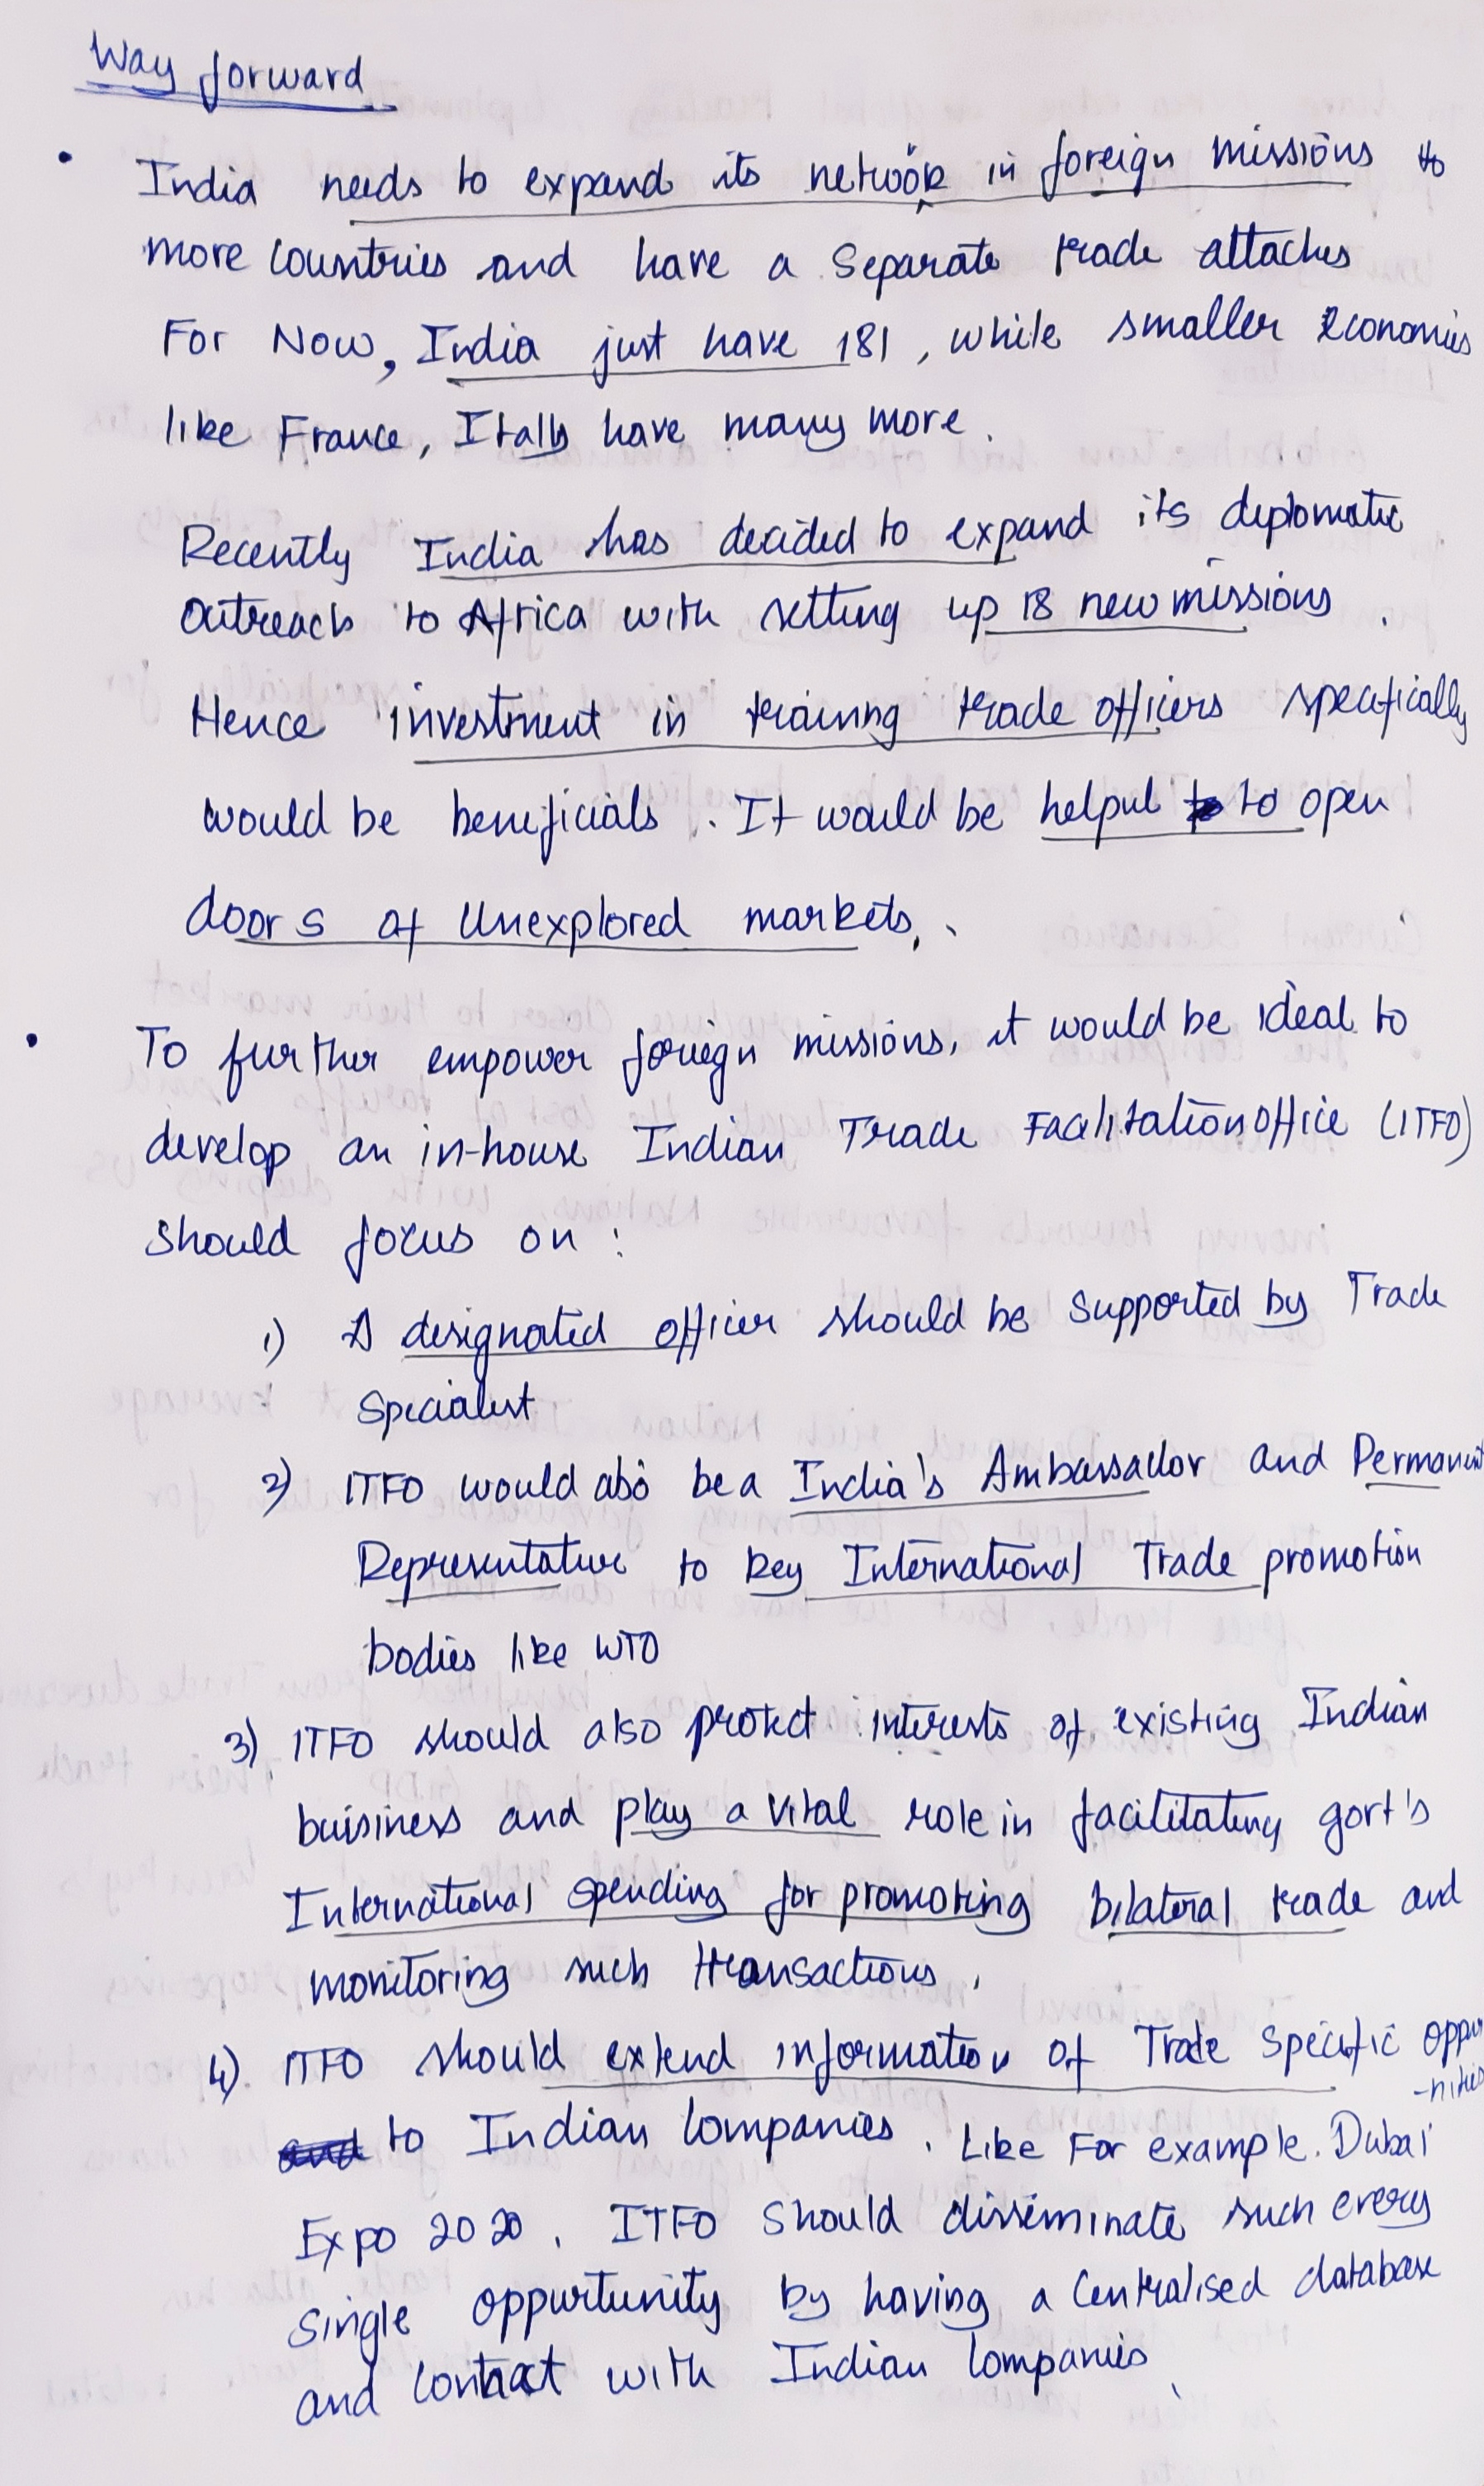 Way forward
• India needs to expand its network in foreign missions to
more countries and have a separate trade attaches
For Now, India just have 181, while smaller Economies
like France, Italy have many more.
Recently India has decided to expand its diplomatic
outreach to Africa with setting up 18 new missions.
Hence investment in training trade officers specifically
would be beneficials. It would be helpul to open
doors of Unexplored markets.
• To further empower foreign missions, it would be ideal to
develop an in-house Indian Trade Facilitation office (ITFO)
should focus on:
1) A designated officer should be supported by Trade
Specialist
2) ITFO would also be a India's Ambassador and Permanent
Representative to key International Trade promotion
bodies like WTO
3) ITFO should also protect interests of existing Indian
buisiness and play a vital role in facilitating govt's
International spending for promoting bilateral trade and
monitoring such transactions.
4) ITFO should extend information of Trade specific oppur
-nities
to Indian Companies. Like For example. Dubai
Expo 2020. ITFO should disseminate such every
single oppurtunity by having a Centralised database
and contact with Indian Companies